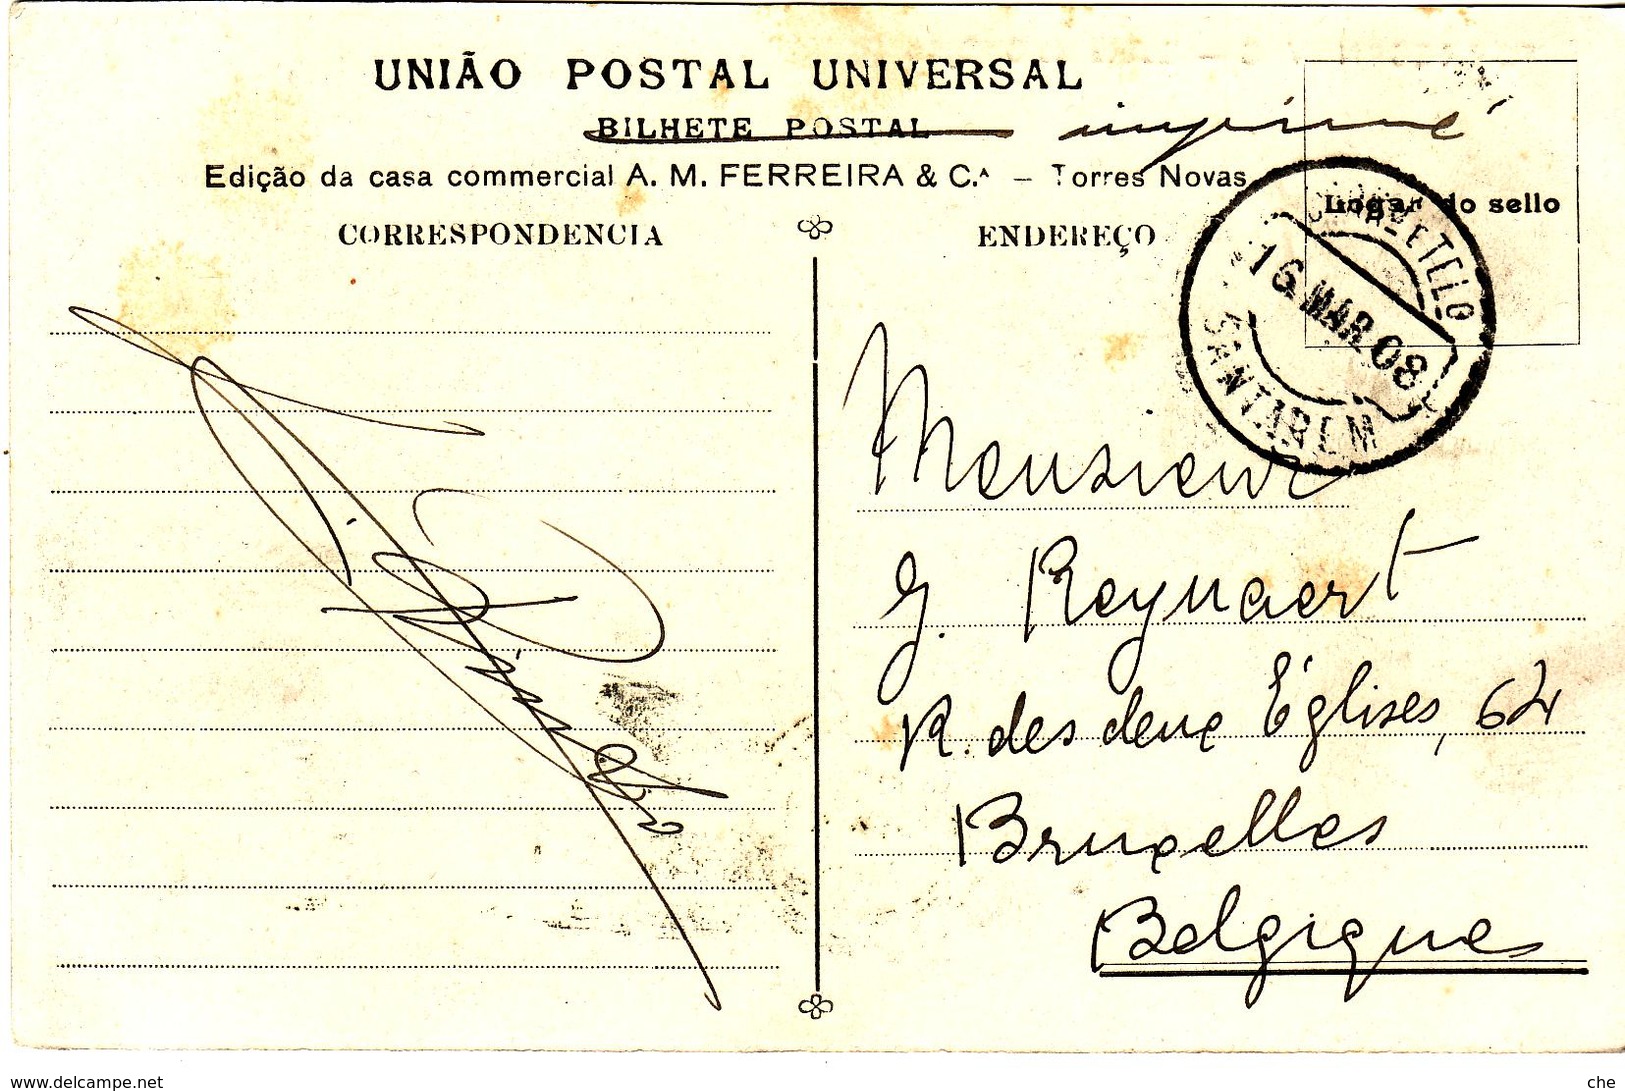 UNIÃO POSTAL UNIVERSAL
BILHETE POSTAL imprimé
Edição da casa commercial A. M. FERREIRA & C.ᴬ — Torres Novas
CORRESPONDENCIA
ENDEREÇO
Logar do sello
CORR. E TELO
16 MAR. 08
SANTAREM
Monsieur
G. Reynaert
R. des deux Églises, 64
Bruxelles
Belgique
www.delcampe.net
che